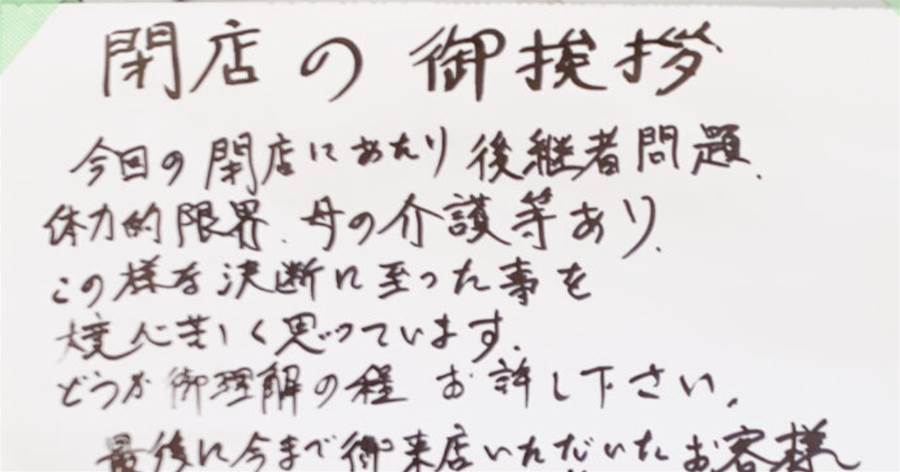 閉店の御挨拶
今回の閉店にあたり後継者問題、
体力的限界、母の介護等あり、
この様な決断に至った事を
大変心苦しく思っています。
どうか御理解の程 お許し下さい。
最後に今まで御来店いただいたお客様